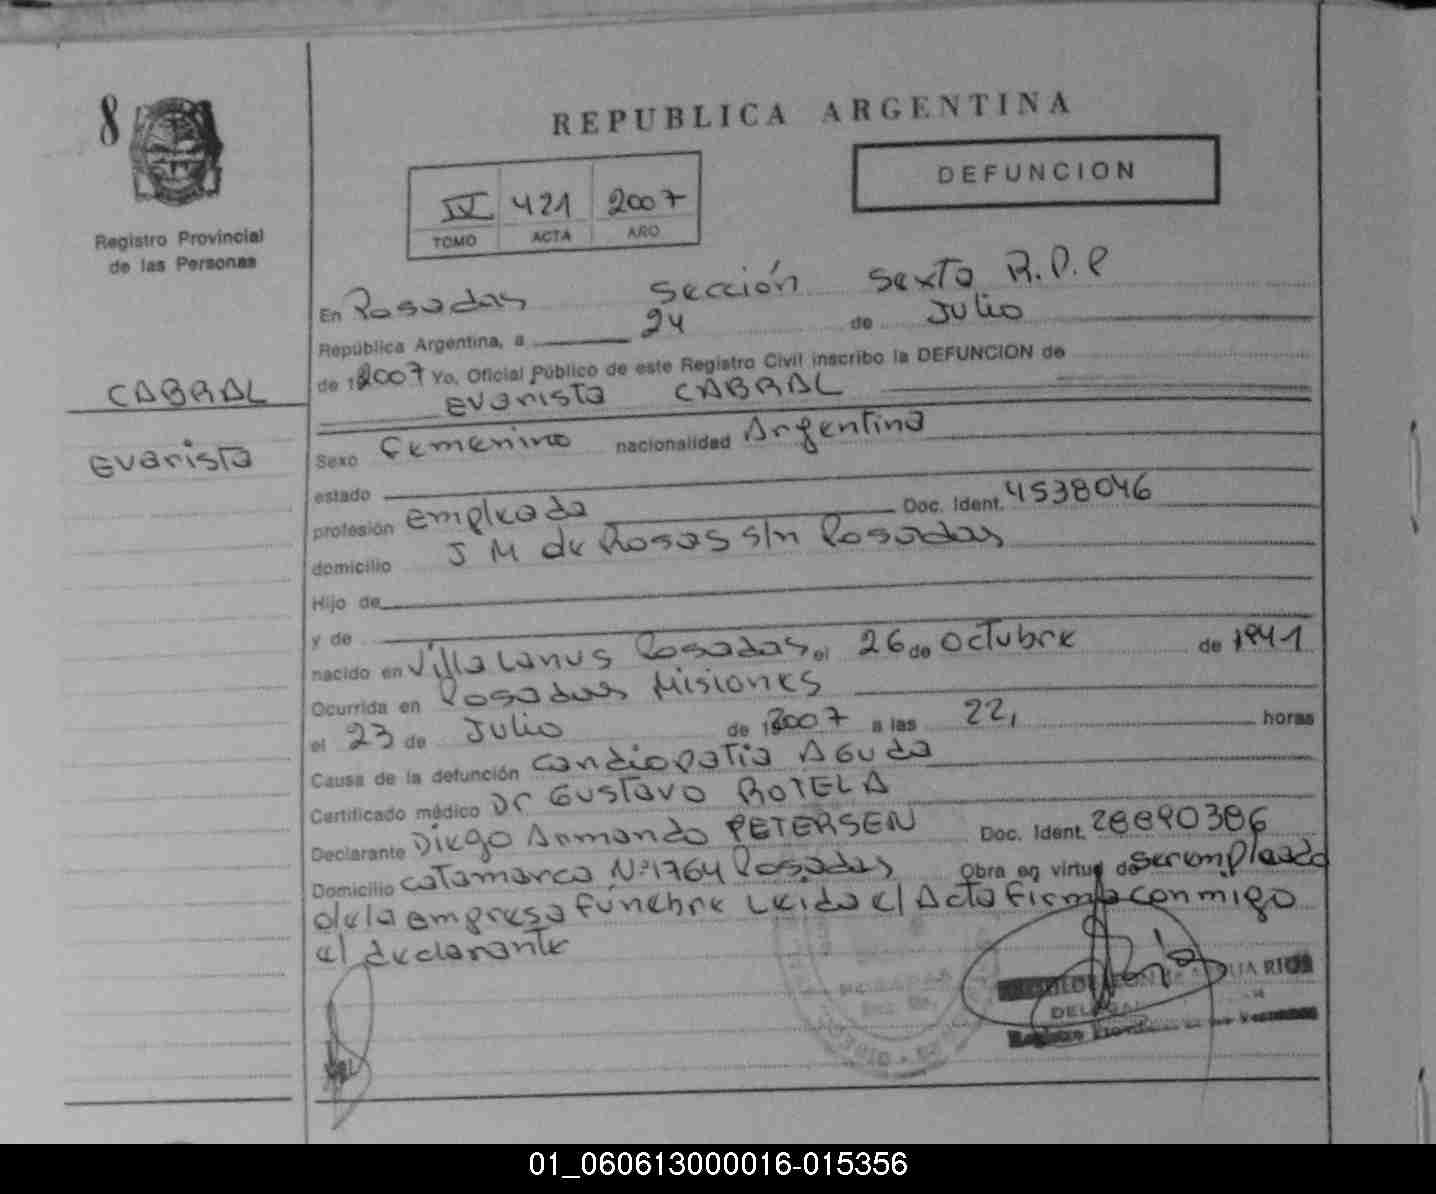 8
REPUBLICA ARGENTINA
DEFUNCION
IV 421 2007
TOMO ACTA AÑO
Registro Provincial
de las Personas
En Posadas Sección Sexta R.P.P
República Argentina, a 24 de Julio
de 12007 Yo, Oficial Público de este Registro Civil inscribo la DEFUNCION de
Evarista CABRAL
CABRAL
Evarista
Sexo Femenino nacionalidad Argentina
estado
profesión empleada Doc. Ident. 4538046
domicilio J M de Rosas s/n Posadas
Hijo de
y de
nacido en Villa Lanus Posadas el 26 de octubre de 1941
Ocurrida en Posadas Misiones
el 23 de Julio de 12007 a las 22, horas
Causa de la defunción Cardiopatia Aguda
Certificado médico Dr Gustavo ROTELA
Declarante Diego Armando PETERSEN Doc. Ident. 28890386
Domicilio Catamarca Nº1764 Posadas Obra en virtud de ser empleado
de la empresa fúnebre Leida el Acta firma conmigo
el declarante
POSADAS
RIOS
01_060613000016-015356